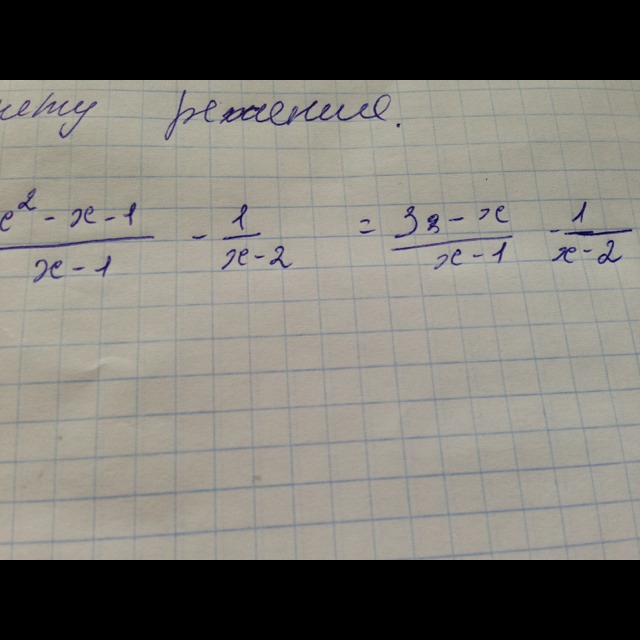 решение.
x² - x - 1 / x - 1 - 1 / x - 2 = 38 - x / x - 1 - 1 / x - 2